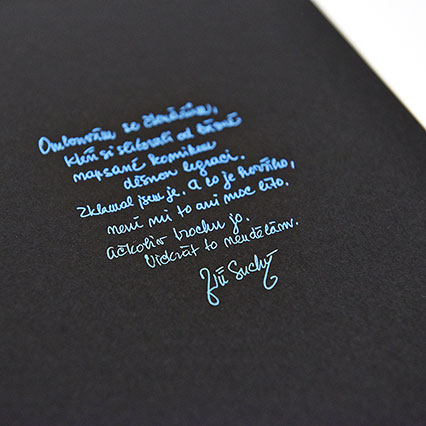 Omlouvám se čtenářům,
kteří si slibovali od básně
napsané komikem
děsnou legraci.
Zklamal jsem je. A co je horšího,
není mi to ani moc líto.
Ačkoliv trochu jo.
Víckrát to neudělám.
Jiří Suchý